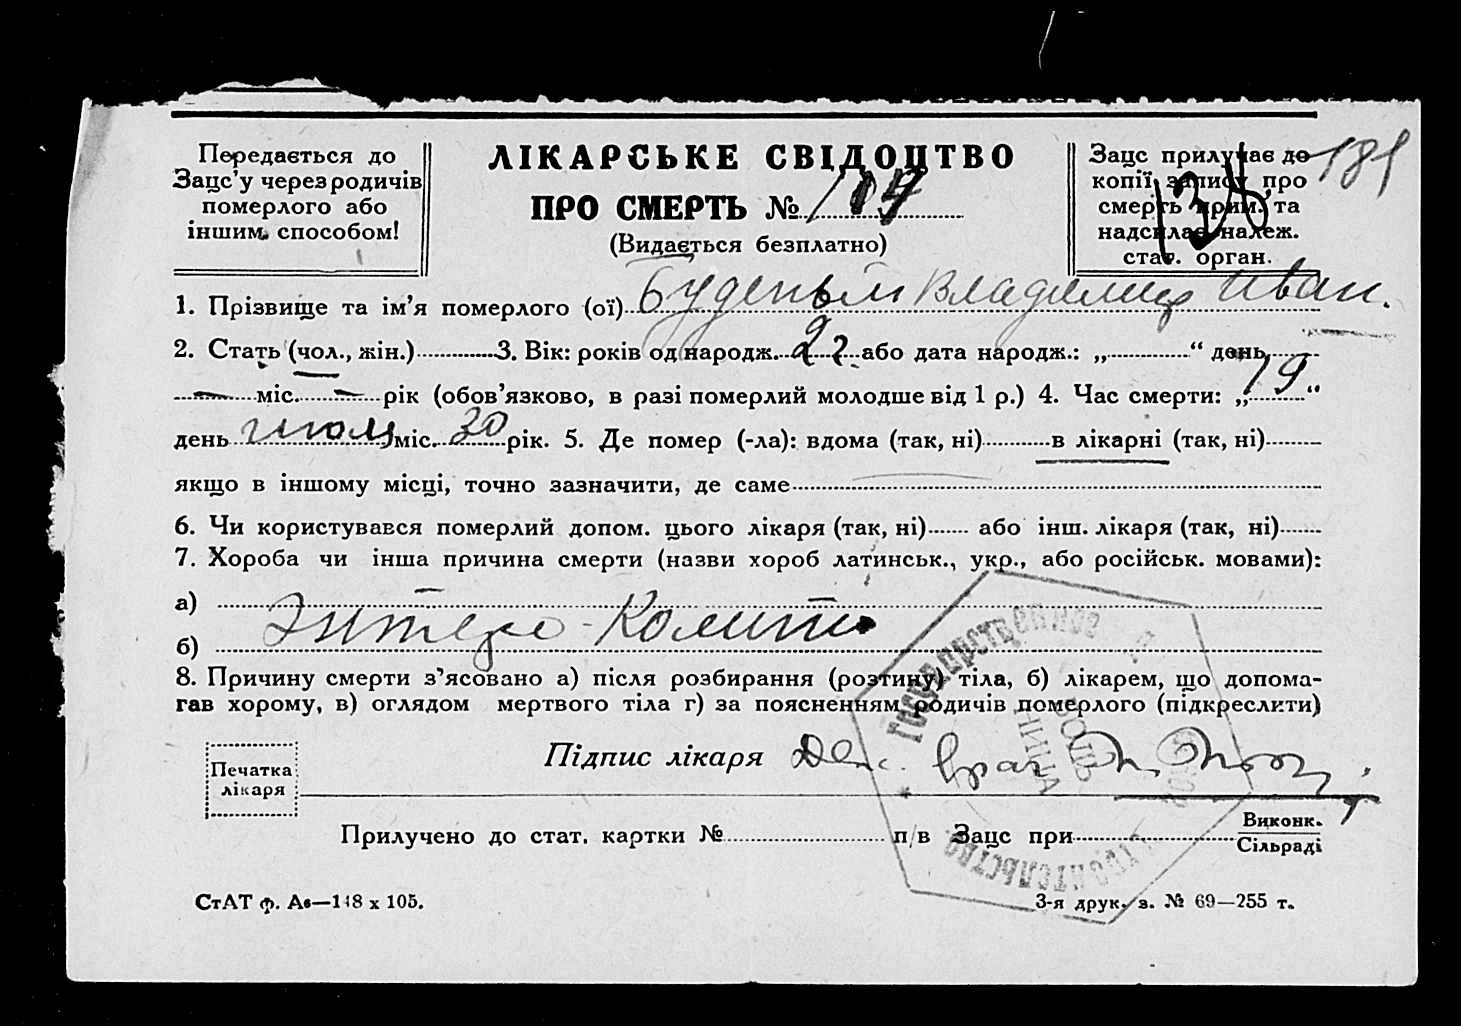 Передається до
Зацс'у через родичів
померлого або
іншим способом!
ЛІКАРСЬКЕ СВІДОЦТВО
ПРО СМЕРТЬ №
(Видається безплатно)
Зацс прилучає до
копії запису про
смерть прим. та
надсилає належ.
стат. орган.
181
134
1. Прізвище та ім'я померлого (ої) Буденый Владимир Иван.
2. Стать (чол., жін.) 3. Вік: років од народж. 22 або дата народж.: „ “ день
— міс. — рік (обов'язково, в разі померлий молодше від 1 р.) 4. Час смерти: „19“
день июля міс. 30 рік. 5. Де помер (-ла): вдома (так, ні) в лікарні (так, ні)
якщо в іншому місці, точно зазначити, де саме
6. Чи користувався померлий допом. цього лікаря (так, ні) або інш. лікаря (так, ні)
7. Хороба чи інша причина смерти (назви хороб латинськ., укр., або російськ. мовами):
а) Энтеро-Колит
б)
8. Причину смерти з'ясовано а) після розбирання (розтину) тіла, б) лікарем, що допома-
гав хорому, в) оглядом мертвого тіла г) за поясненням родичів померлого (підкреслити)
Печатка
лікаря
Підпис лікаря Деж. врач
Государственное
БОЛЬ
НИЦА
Прилучено до стат. картки № п/в Зацс при Виконк.
Сільраді
СтАТ ф. А6—148 х 105.
3-я друк. з. № 69—255 т.